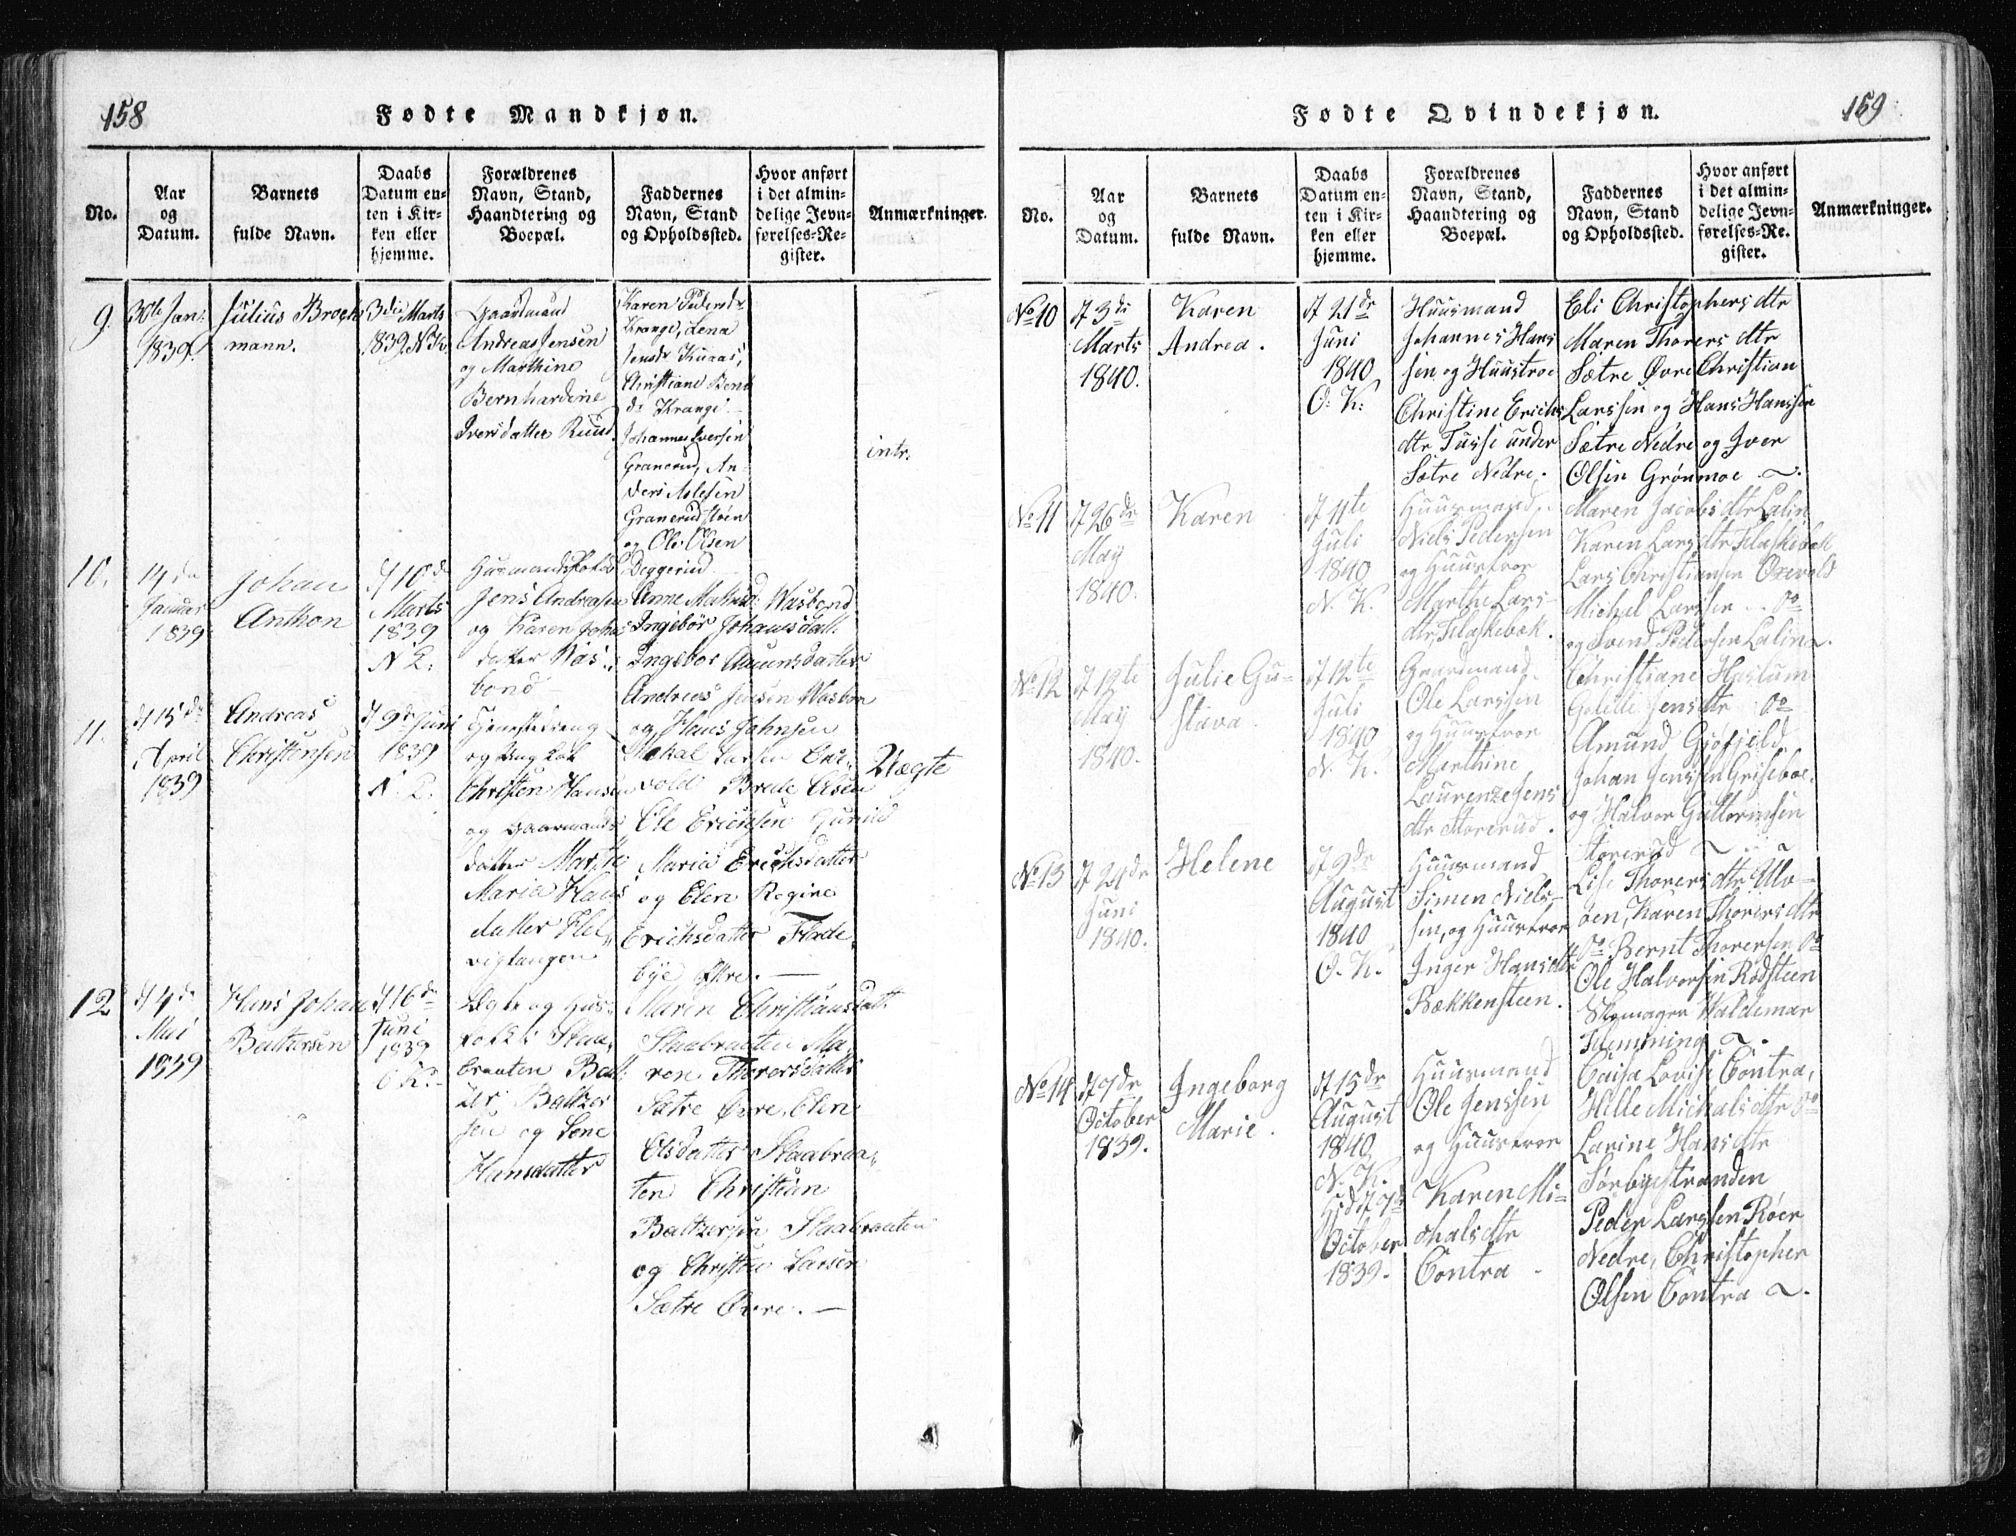 158
Fødte Mandkjøn.
No.
Aar
og
Datum.
Barnets
fulde Navn.
Daabs
Datum en-
ten i Kir-
ken eller
hjemme.
Forældrenes
Navn, Stand,
Haandtering og
Boepæl.
Faddernes
Navn, Stand
og Opholdssted.
Hvor anført
i det almin-
delige Jevn-
førelses-Re-
gister.
Anmærkninger.
9.
30te Jan:
1839.
Julius Brock
mann.
3die Marts
1839. N.K.
Gaardmand
Andreas Jensen
og Marthine
Bernhardine
Iversdatter Ruud
Karen Pedersdr
Krange, Lena
Jensdr
Christiane Bend
dr Krange
Johannes Iversen
Granerud, An-
ders Aslesen
Granerudstøen
og Ole Olsen
Deggerud
intr.
10.
14de
Januar
1839
Johan
Anthon
d 10de
Marts
1839
N K.
Huusmandsfolk
Jens Andreasen
og Karen Johns
datter Vas-
bond
Anne Wasbond
Ingebor Johansdatt:
Ingebor Amunsdatter
Andreas Jensen Wasbon
og Hans Johnsen
11.
d 15de
April
1839
Andreas
Christensen
d 9de Juni
1839
N. K.
Tjenestedreng
og
Christen Hansen
og Gaarmands
datter Marthe
Maria Hans
datter Hel-
vigtangen
Mekal Larsen
vold Brede Olsen
Ole Erichsen Gunild
Maria Erichsdatter
og Elen Regine
Erichsdatter Flade-
bye Øvre. —
Uægte
12
d 4de
Mai
1839
Hans Johan
Baltzersen
d 16de
Juni
1839
O K.
Ægte og Hus-
folk Staa-
braaten Balt-
zer Baltzer
sen og Lene
Hansdatter
Maren Christiansdatt.
Staabraaten Ma-
ren Thorersdatter
Sætre Øvre, Elen
Olsdatter Staabraa-
ten Christian
Baltzersen Staabraaten
og Christian Larsen
Sætre Øvre. —
159
Fødte Qvindekjøn.
No.
Aar
og
Datum.
Barnets
fulde Navn.
Daabs
Datum en-
ten i Kir-
ken eller
hjemme.
Forældrenes
Navn, Stand,
Haandtering og
Boepæl.
Faddernes
Navn, Stand
og Opholdssted.
Hvor anført
i det almin-
delige Jevn-
førelses-Re-
gister.
Anmærkninger.
No 10
d 3di
Marts
1840.
Karen
Andrea.
d 21de
Juni
1840
O. K.
Huusmand
Johannes Hans
sen og Huustroe
Christine Erichs
dtr Tusse under
Sætre Nedre.
Eli Christophersdtr
Maren Thorersdtr
Sætre Øvre Christian
Larssen og Hans Hanssen
Sætre Nedre og Iver
Olsen Grønmoe
No 11
d 26de
May
1840.
Karen
d 11te
Juli
1840
N. K.
Huusmand
Niels Pedersen
og Huustroe
Marthe Lars-
dtr, Flaskebæk.
Maren Jacobsdtr Lalin
Karen Larsdtr Flaskebæk
Lars Christiansen Oxevold
Michel Larssen do
og Svend Pedersen Lalin
No 12
d 12te
May
1840.
Julie Gu-
stava.
d 12te
Juli
1840
N. K.
Gaardmand
Ole Larssen
og Huustroe
Marthine
Laurenze Jens
dtr Storerud.
Christiane Haslum
Golille Jensdtr do
Amund Gjøfjeld
Johan Jenssen Griseboe
og Halvor Guttormsen
Storerud
No 13
d 24de
Juni
1840.
Helene
d 9de
August
1840
O. K.
Huusmand
Simen Niels-
sen, og Huustroe
Inger Hansdtr
Bækkensteen.
Lise Thorersdtr Ulv-
øen, Karen Thorersdtr
do Bernt Thorersen do
Ole Halvorsen Rødsteen
Skomager Waldemar
Flemming
No 14
d 7de
October
1839.
Ingeborg
Marie.
d 15de
August
1840
N. K.
Hd d 7de
October
1839.
Huusmand
Ole Jenssen
og Huustroe
Karen Mi-
chalsdtr
Contra
Caisa Lovise Contra,
Hille Michalsdtr do
Larine Hansdtr
Sørbyestranden
Peder Larssen Røer
Nedre, Christopher
Olsen Contra